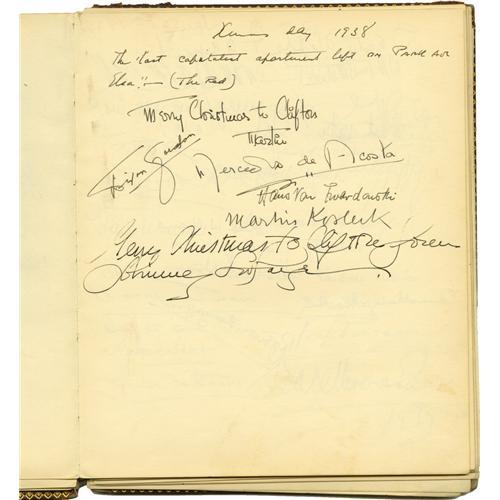 Xmas day 1938
The last capitalist apartment left on Park Ave
Elsa!! — (The Red)
Merry Christmas to Clifton
Martin
Mercedes de Acosta
Hans Von Twardowski
Martin Kosleck
Merry Christmas to Clifton from